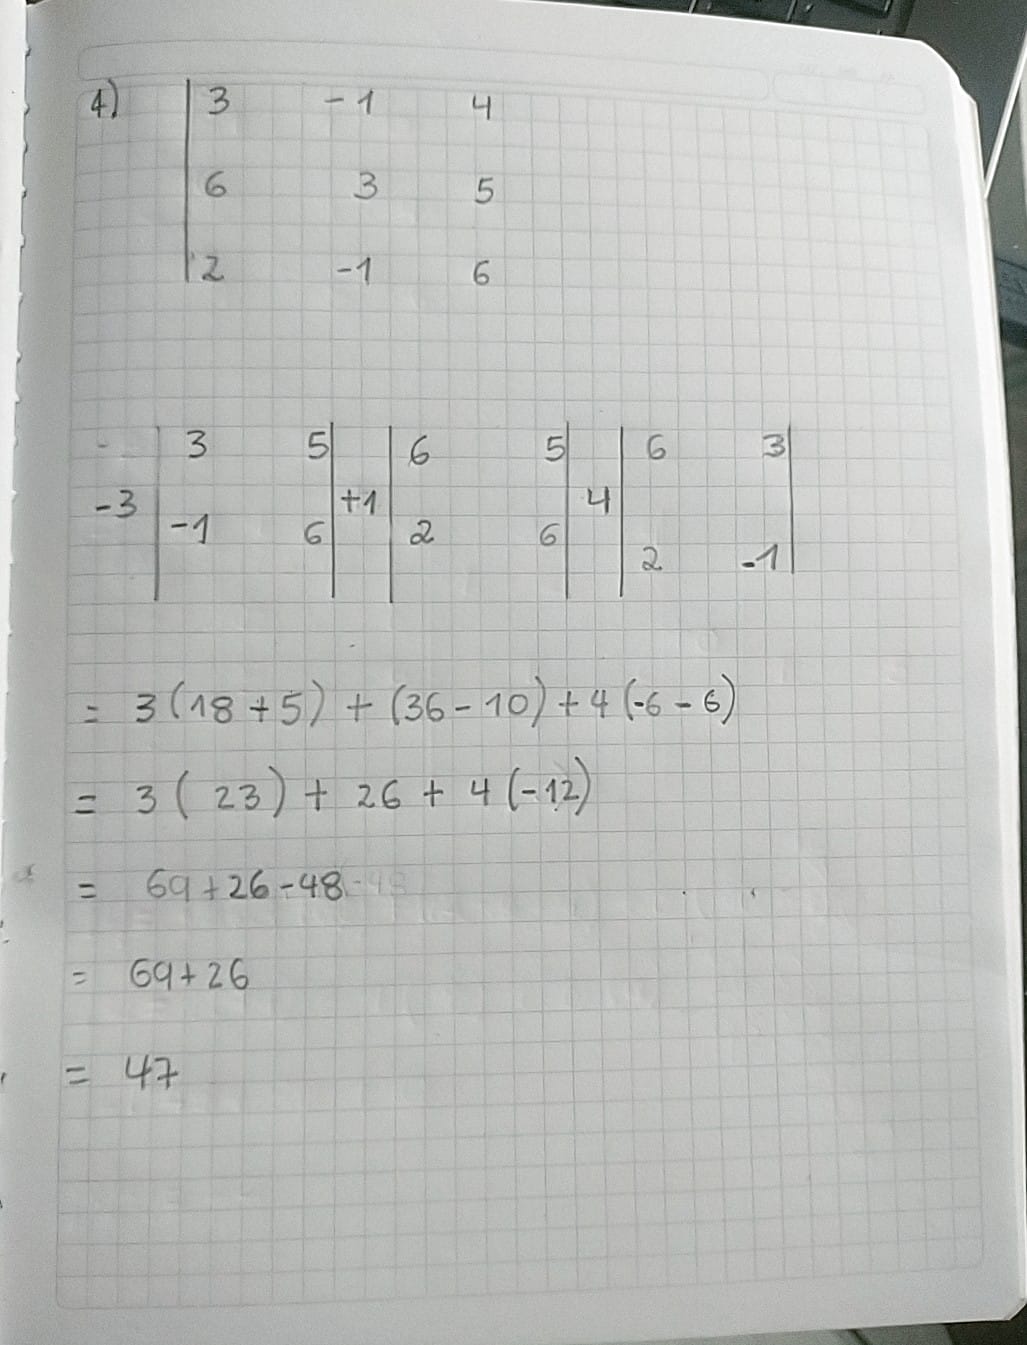 4) | 3 -1 4
6 3 5
2 -1 6
| 3 5 | | 6 5 | | 6 3 |
-3 +1 4
-1 6 2 6
2 -1
= 3(18+5) + (36-10) + 4(-6-6)
= 3( 23) + 26 + 4(-12)
= 69+26-48 -48
= 69+26
= 47